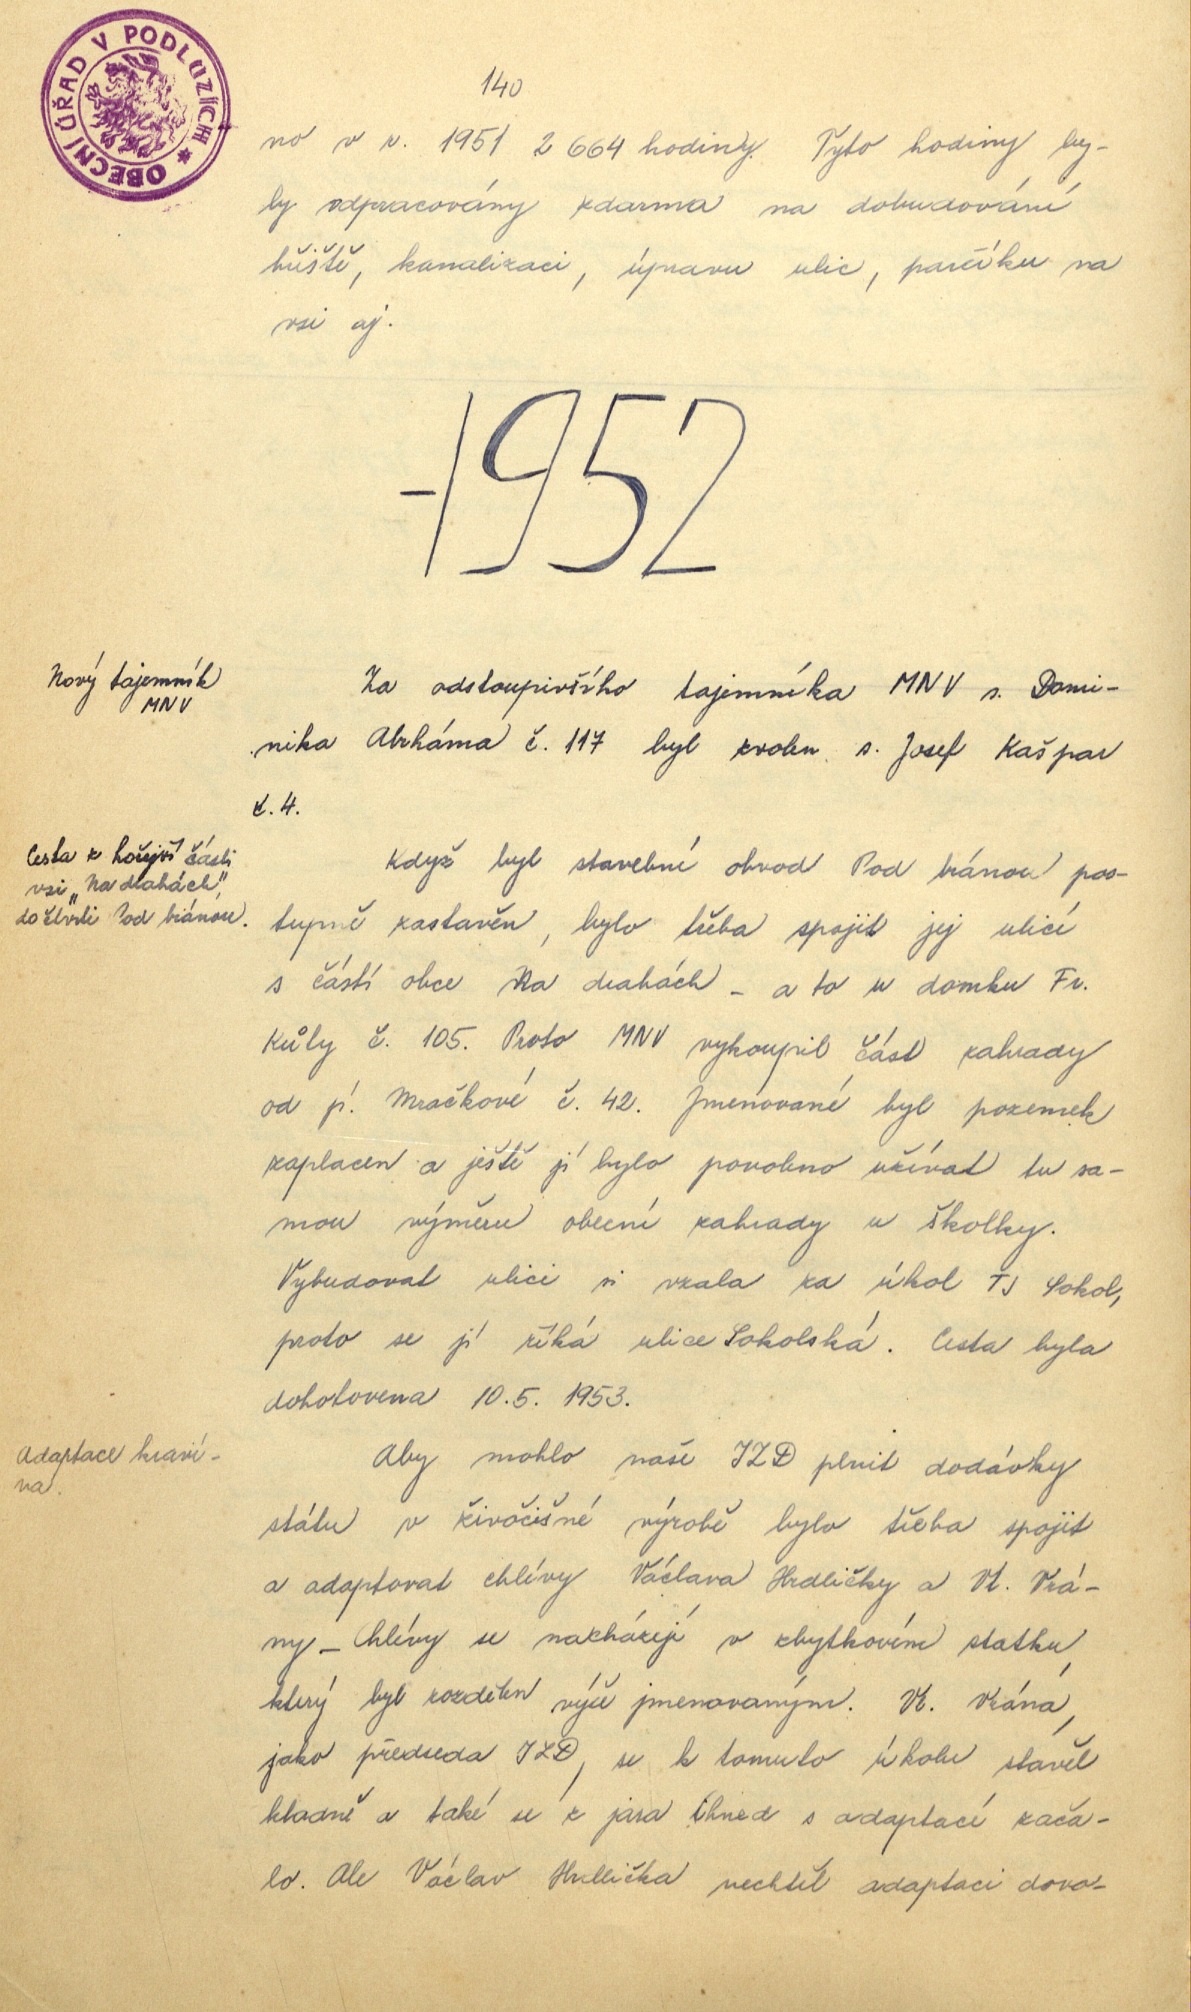 OBECNÍ ÚŘAD V PODLUZÍCH *
140
no v r. 1951 2 664 hodiny. Tyto hodiny by-
ly odpracovány zdarma na dobudování
hřiště, kanalizaci, úpravu ulic, parčíku na
vsi aj.
1952
Nový tajemník
MNV
Za odstoupivšího tajemníka MNV s. Domi-
nika Abrháma č. 117 byl zvolen s. Josef Kašpar
č. 4.
Cesta z hořejší části
vsi „Na drahách",
do čtvrti Pod bránou.
Když byl stavební obvod Pod bránou pos-
tupně zastavěn, bylo třeba spojit jej ulicí
s částí obce Na drahách – a to u domku Fr.
Kůly č. 105. Proto MNV vykoupil část zahrady
od pí. Mračkové č. 42. Jmenované byl pozemek
zaplacen a ještě jí bylo povoleno užívat tu sa-
mou výměru obecní zahrady u školky.
Vybudovat ulici si vzala za úkol TJ Sokol,
proto se jí říká ulice Sokolská. Cesta byla
dohotovena 10.5. 1953.
Adaptace kraví-
na.
Aby mohlo naše JZD plnit dodávky
státu v živočišné výrobě bylo třeba spojit
a adaptovat chlívy Václava Hrdličky a Vl. Vrá-
ny – Chlívy se nacházejí v zbytkovém statku,
který byl rozdělen výše jmenovaným. Vl. Vrána,
jako předseda JZD, se k tomuto úkolu stavěl
kladně a také se z jara ihned s adaptací zača-
lo. Ale Václav Hrdlička nechtěl adaptaci dovo-